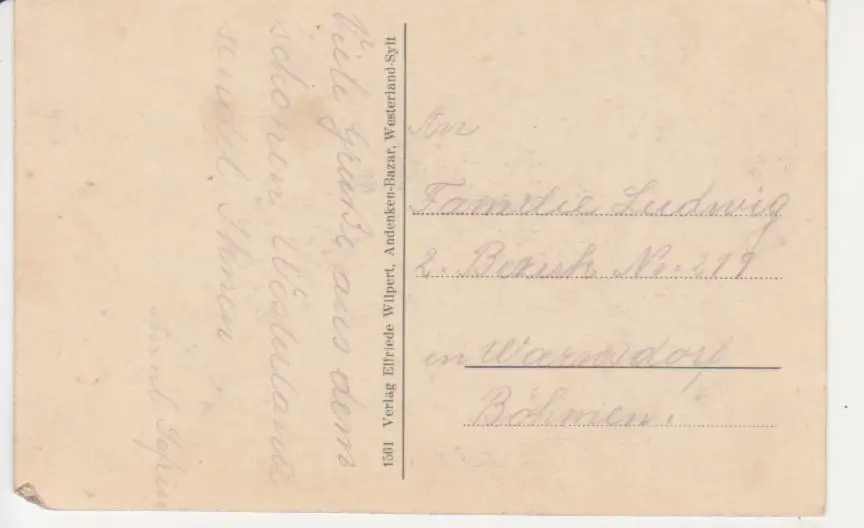 Viele Grüße aus dem
schönen Westerland
sendet Ihnen
1561 Verlag Elfriede Wilpert, Andenken-Bazar, Westerland-Sylt
An
Familie Ludwig
2. Bezirk No: 219
in Warnsdorf
Böhmen.